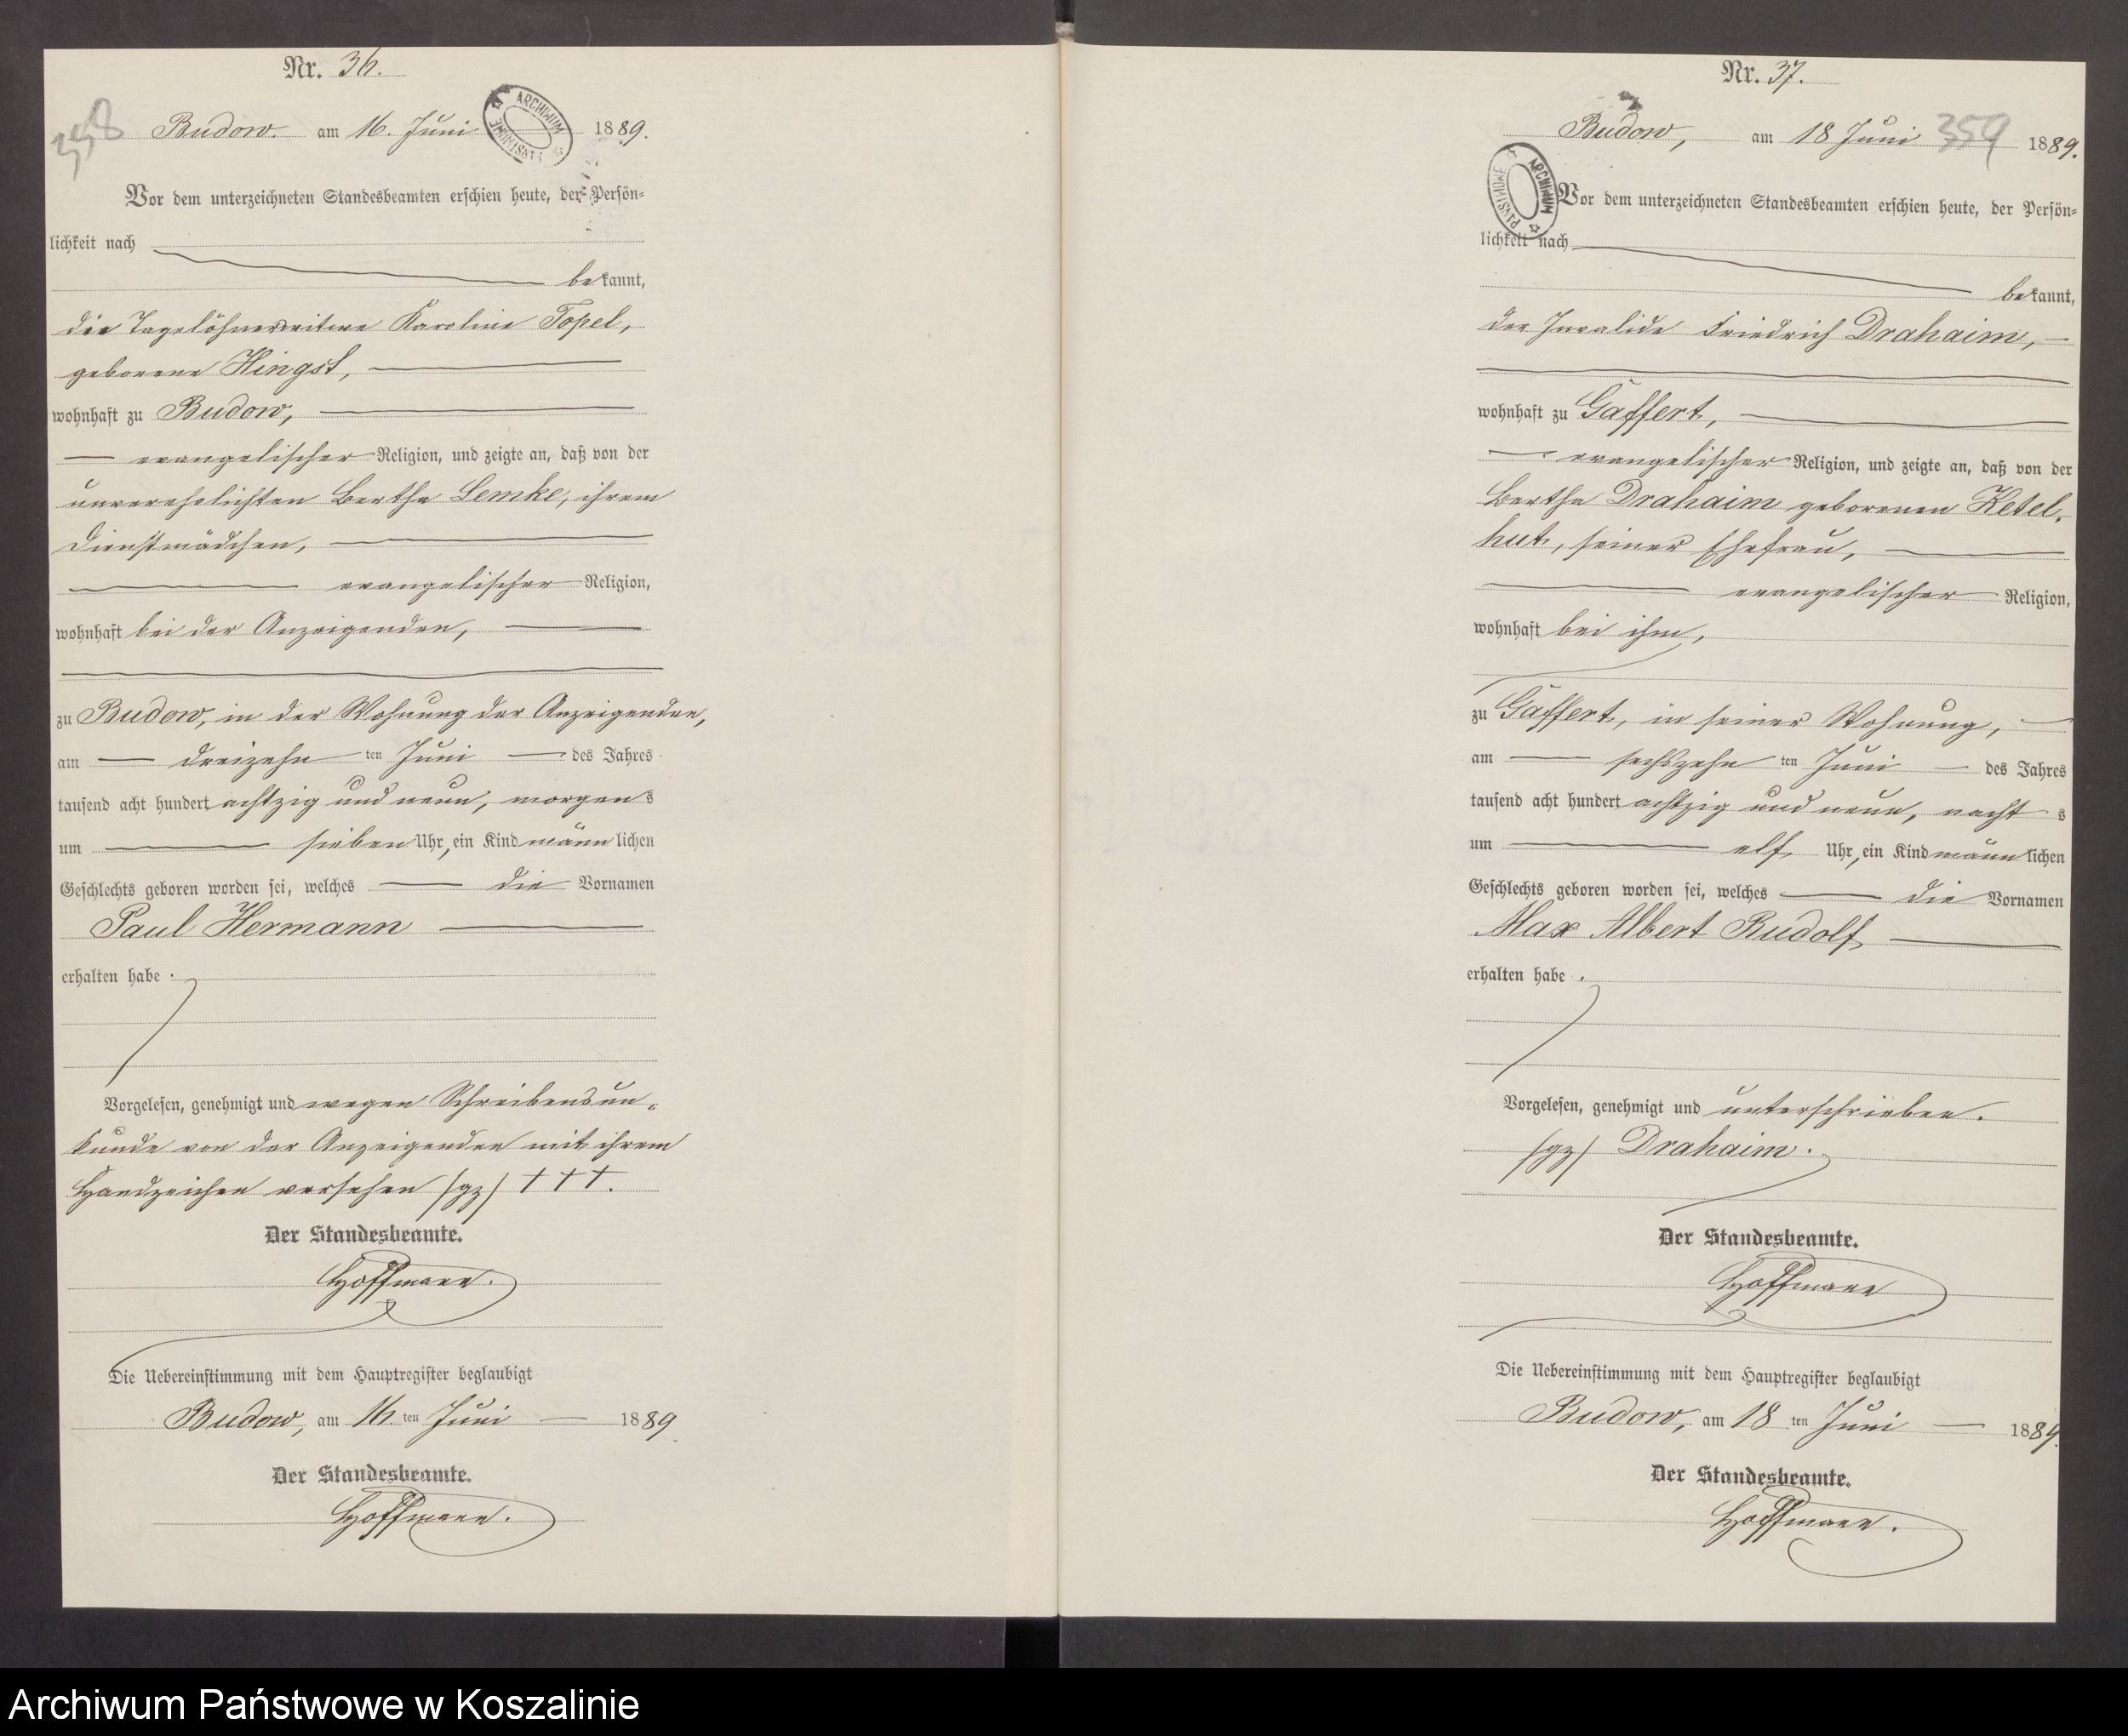 Nr. 36.
358
Budow. am 16. Juni 1889.
ARCHIWUM PAŃSTWOWE
Vor dem unterzeichneten Standesbeamten erschien heute, der Persön-
lichkeit nach
bekannt,
die Tagelöhnerwitwe Karoline Topel,
geborene Hingst,
wohnhaft zu Budow,
evangelischer Religion, und zeigte an, daß von der
unverehelichten Bertha Lemke, ihrem
Dienstmädchen,
evangelischer Religion,
wohnhaft bei der Anzeigenden,
zu Budow, in der Wohnung der Anzeigenden,
am dreizehn ten Juni des Jahres
tausend acht hundert achtzig und neun, morgens
um sieben Uhr, ein Kind männlichen
Geschlechts geboren worden sei, welches die Vornamen
Paul Hermann
erhalten habe.
Vorgelesen, genehmigt und wegen Schreibensun-
kunde von der Anzeigenden mit ihrem
Handzeichen versehen /gz/ † † †.
Der Standesbeamte.
Hoffmann.
Die Uebereinstimmung mit dem Hauptregister beglaubigt
Budow, am 16. ten Juni 1889
Der Standesbeamte.
Hoffmann.
Nr. 37.
Budow, am 18 Juni 359 1889.
ARCHIWUM PAŃSTWOWE
Vor dem unterzeichneten Standesbeamten erschien heute, der Persön-
lichkeit nach
bekannt,
der Invalide Friedrich Drahaim,
wohnhaft zu Gaffert,
evangelischer Religion, und zeigte an, daß von der
Bertha Drahaim geborenen Ketel-
hut, seiner Ehefrau,
evangelischer Religion,
wohnhaft bei ihm,
zu Gaffert, in seiner Wohnung,
am sechszehn ten Juni des Jahres
tausend acht hundert achtzig und neun, nachts
um elf Uhr, ein Kind männlichen
Geschlechts geboren worden sei, welches die Vornamen
Max Albert Rudolf
erhalten habe.
Vorgelesen, genehmigt und unterschrieben.
/gz/ Drahaim.
Der Standesbeamte.
Hoffmann
Die Uebereinstimmung mit dem Hauptregister beglaubigt
Budow, am 18 ten Juni 1889.
Der Standesbeamte.
Hoffmann.
Archiwum Państwowe w Koszalinie